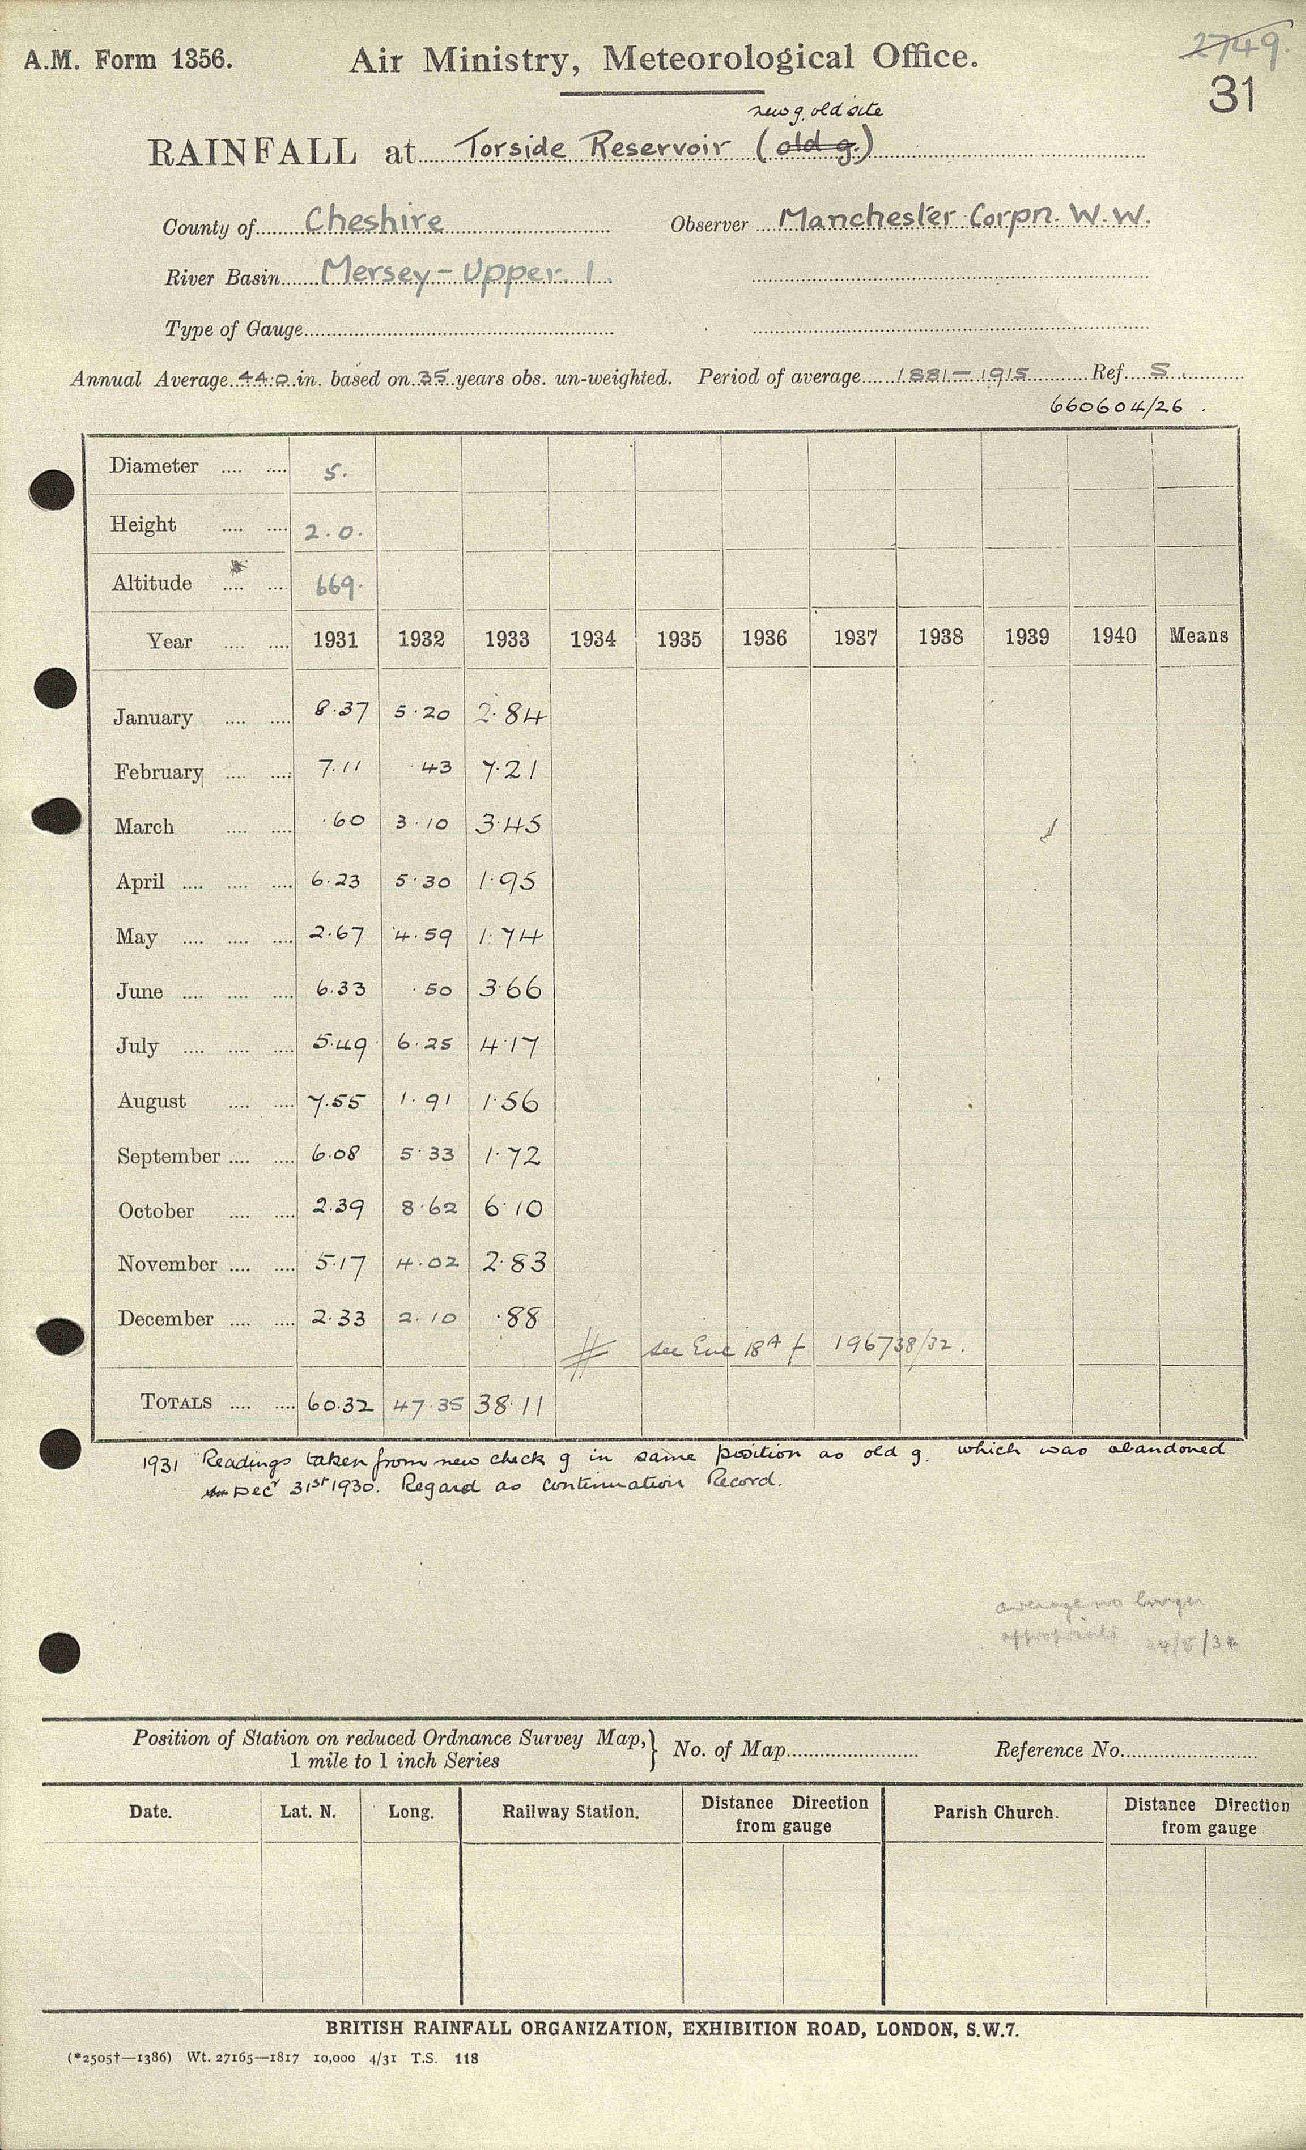 A.M. Form 1356. Air Ministry, Meteorological Office. 2749.
31
new g. old site
RAINFALL at Torside Reservoir (old g.)
County of Cheshire Observer Manchester Corpn. W.W.
River Basin Mersey - Upper. 1.
Type of Gauge
Annual Average 44.0 in. based on 35 years obs. un-weighted. Period of average 1881 - 1915 Ref. S
660604/26.
Diameter 5.
Height 2.0.
Altitude 669.
Year 1931 1932 1933 1934 1935 1936 1937 1938 1939 1940 Means
January 8.37 5.20 2.84
February 7.11 .43 7.21
March .60 3.10 3.45
April 6.23 5.30 1.95
May 2.67 4.59 1.74
June 6.33 .50 3.66
July 5.49 6.25 4.17
August 7.55 1.91 1.56
September 6.08 5.33 1.72
October 2.39 8.62 6.10
November 5.17 4.02 2.83
December 2.33 2.10 .88
see 18A 196738/32.
TOTALS 60.32 47.35 38.11
1931 Readings taken from new check g in same position as old g. which was abandoned
Decr 31st 1930. Regard as continuation Record.
average no longer
appropriate
Position of Station on reduced Ordnance Survey Map, } No. of Map Reference No.
1 mile to 1 inch Series
Date. Lat. N. Long. Railway Station. Distance Direction from gauge Parish Church. Distance Direction from gauge
BRITISH RAINFALL ORGANIZATION, EXHIBITION ROAD, LONDON, S.W.7.
(*2505†—1386) Wt. 27165—1817 10,000 4/31 T.S. 118